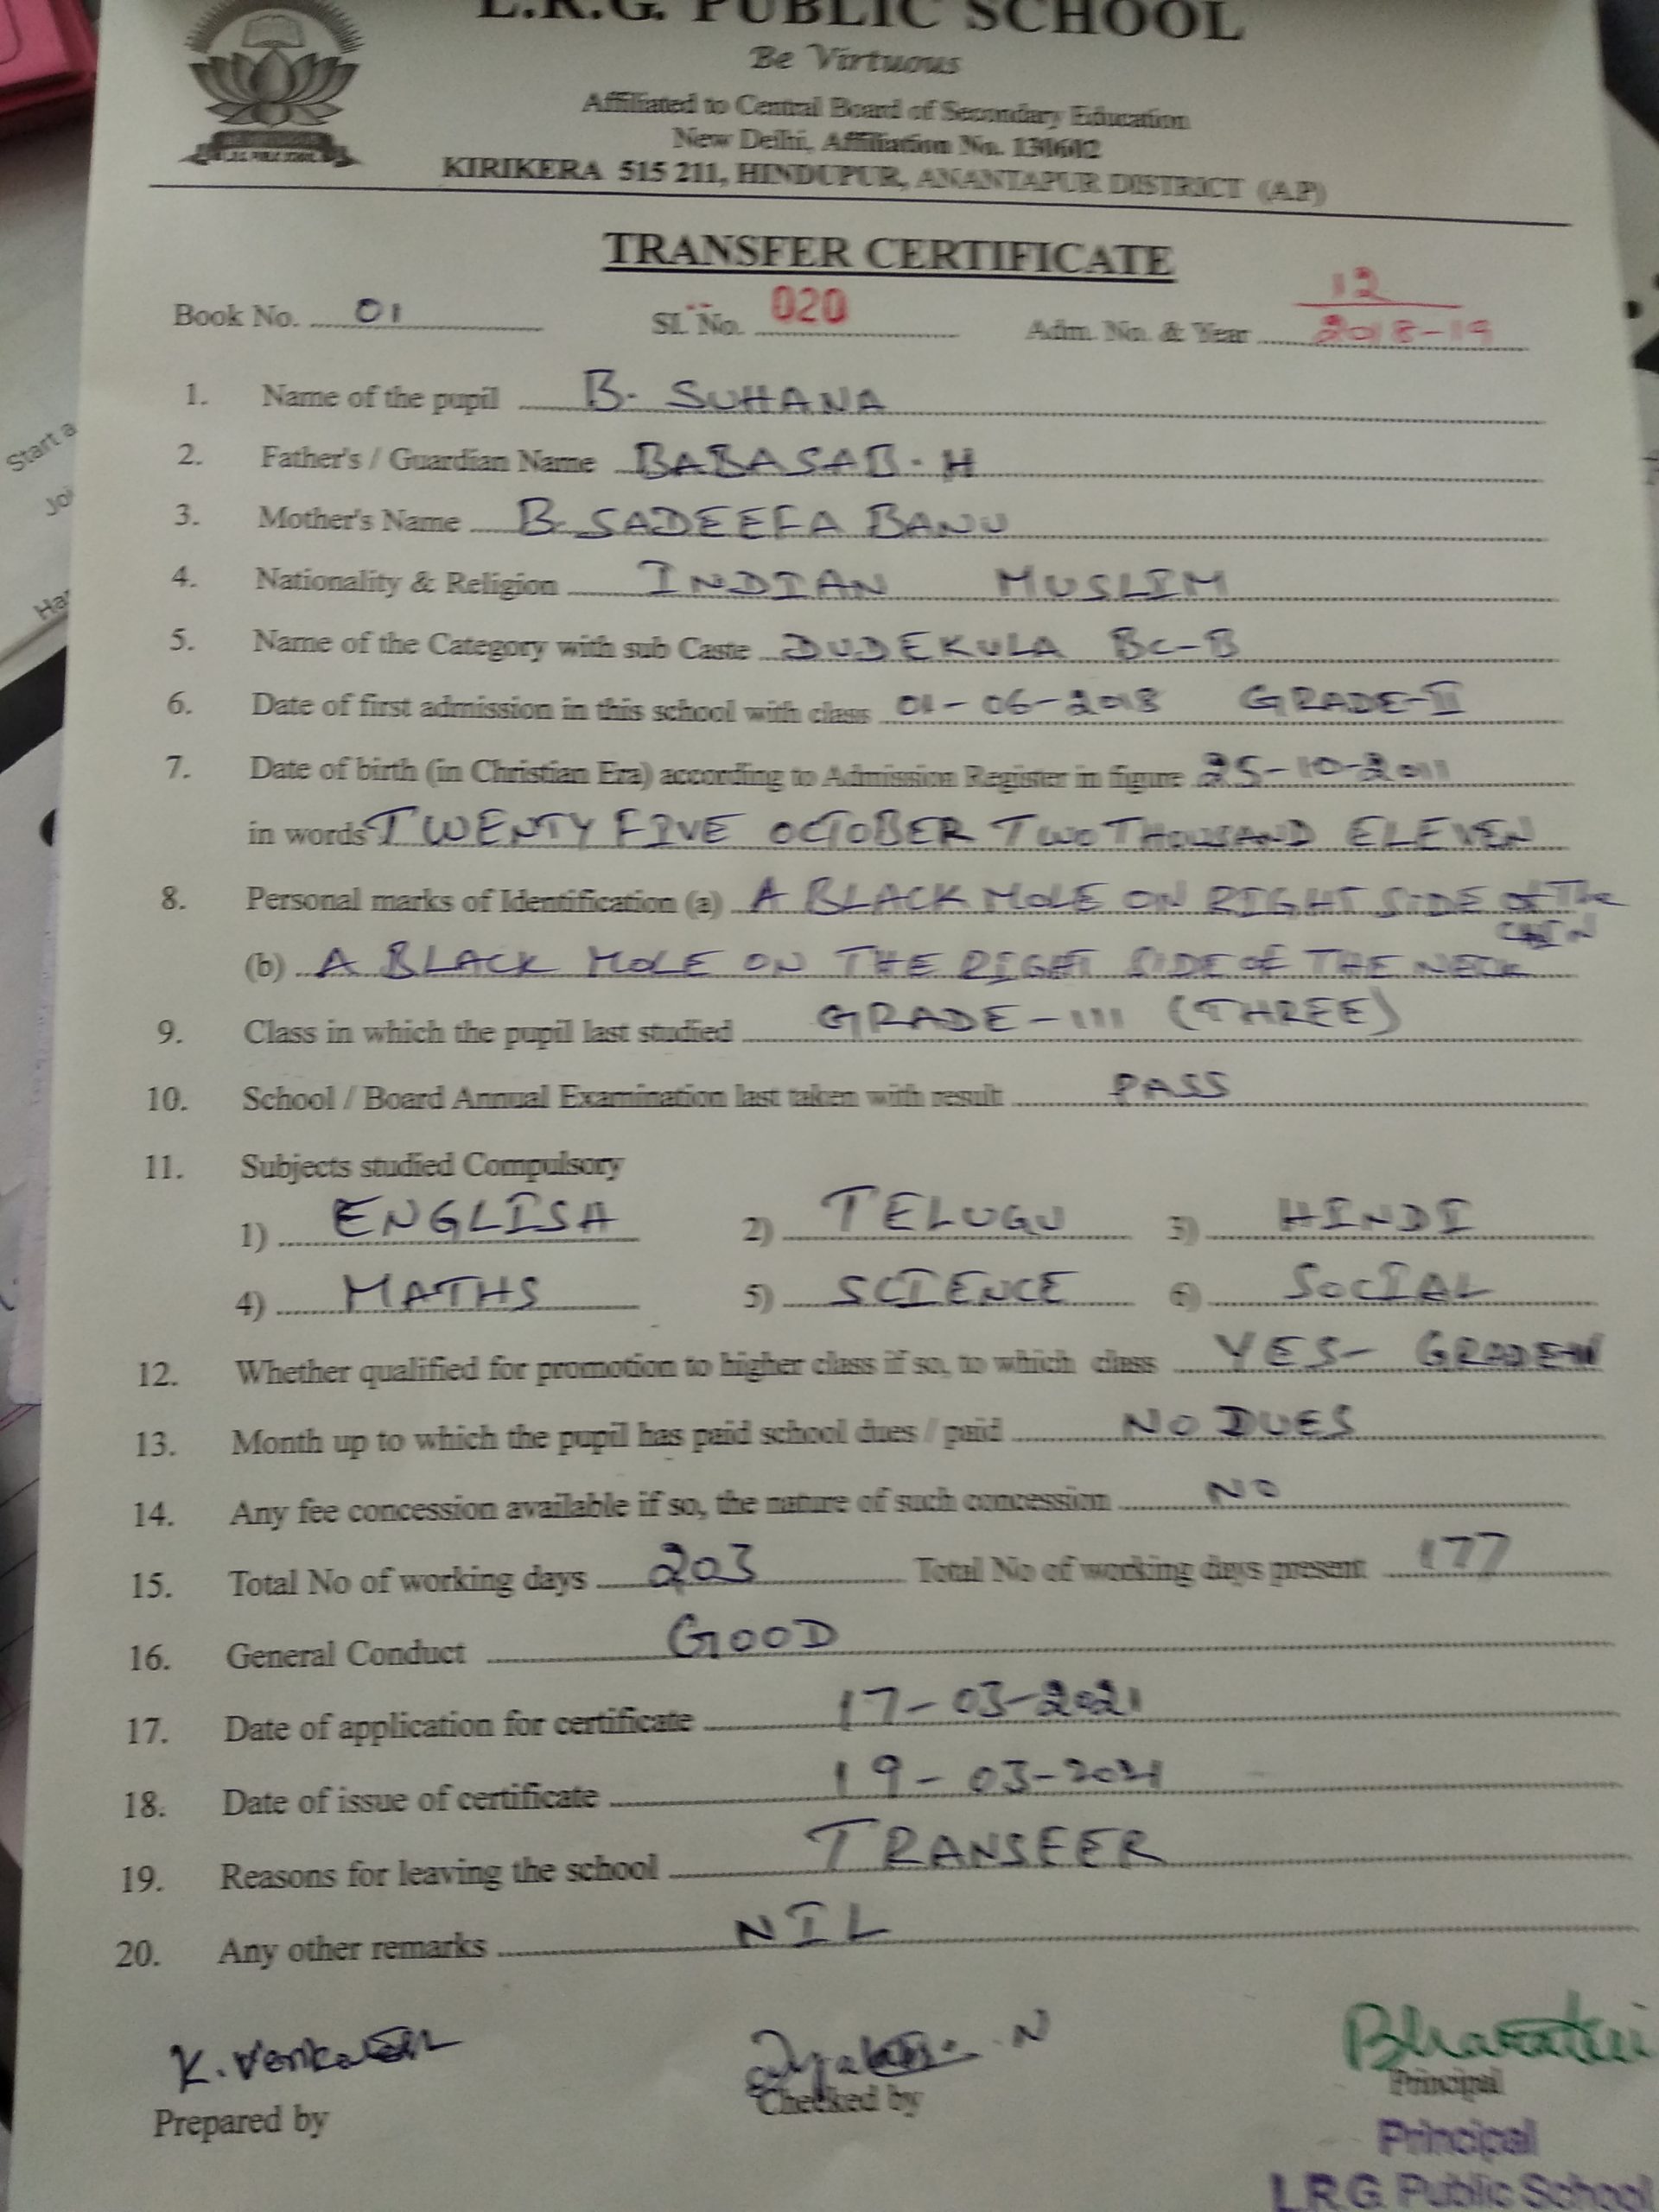 L.R.G. PUBLIC SCHOOL
Be Virtuous
Affiliated to Central Board of Secondary Education
New Delhi, Affiliation No. 130602
KIRIKERA 515 211, HINDUPUR, ANANTAPUR DISTRICT (A.P)
TRANSFER CERTIFICATE
Book No. 01 Sl. No. 020 Adm. No. & Year 12 / 2018-19
1. Name of the pupil B. SUHANA
2. Father's / Guardian Name BABASAB. H
3. Mother's Name B. SADEEFA BANU
4. Nationality & Religion INDIAN MUSLIM
5. Name of the Category with sub Caste DUDEKULA BC-B
6. Date of first admission in this school with class 01-06-2018 GRADE-II
7. Date of birth (in Christian Era) according to Admission Register in figure 25-10-2011
in words TWENTY FIVE OCTOBER TWO THOUSAND ELEVEN
8. Personal marks of Identification (a) A BLACK MOLE ON RIGHT SIDE OF The CHIN
(b) A BLACK MOLE ON THE RIGHT SIDE OF THE NECK
9. Class in which the pupil last studied GRADE-III (THREE)
10. School / Board Annual Examination last taken with result PASS
11. Subjects studied Compulsory
1) ENGLISH 2) TELUGU 3) HINDI
4) MATHS 5) SCIENCE 6) SOCIAL
12. Whether qualified for promotion to higher class if so, to which class YES- GRADE-IV
13. Month up to which the pupil has paid school dues / paid NO DUES
14. Any fee concession available if so, the nature of such concession NO
15. Total No of working days 203 Total No of working days present 177
16. General Conduct GOOD
17. Date of application for certificate 17-03-2021
18. Date of issue of certificate 19-03-2021
19. Reasons for leaving the school TRANSFER
20. Any other remarks NIL
K. Venkatesh N Bharathi
Prepared by Checked by Principal
Principal
L.R.G. Public School
Start a